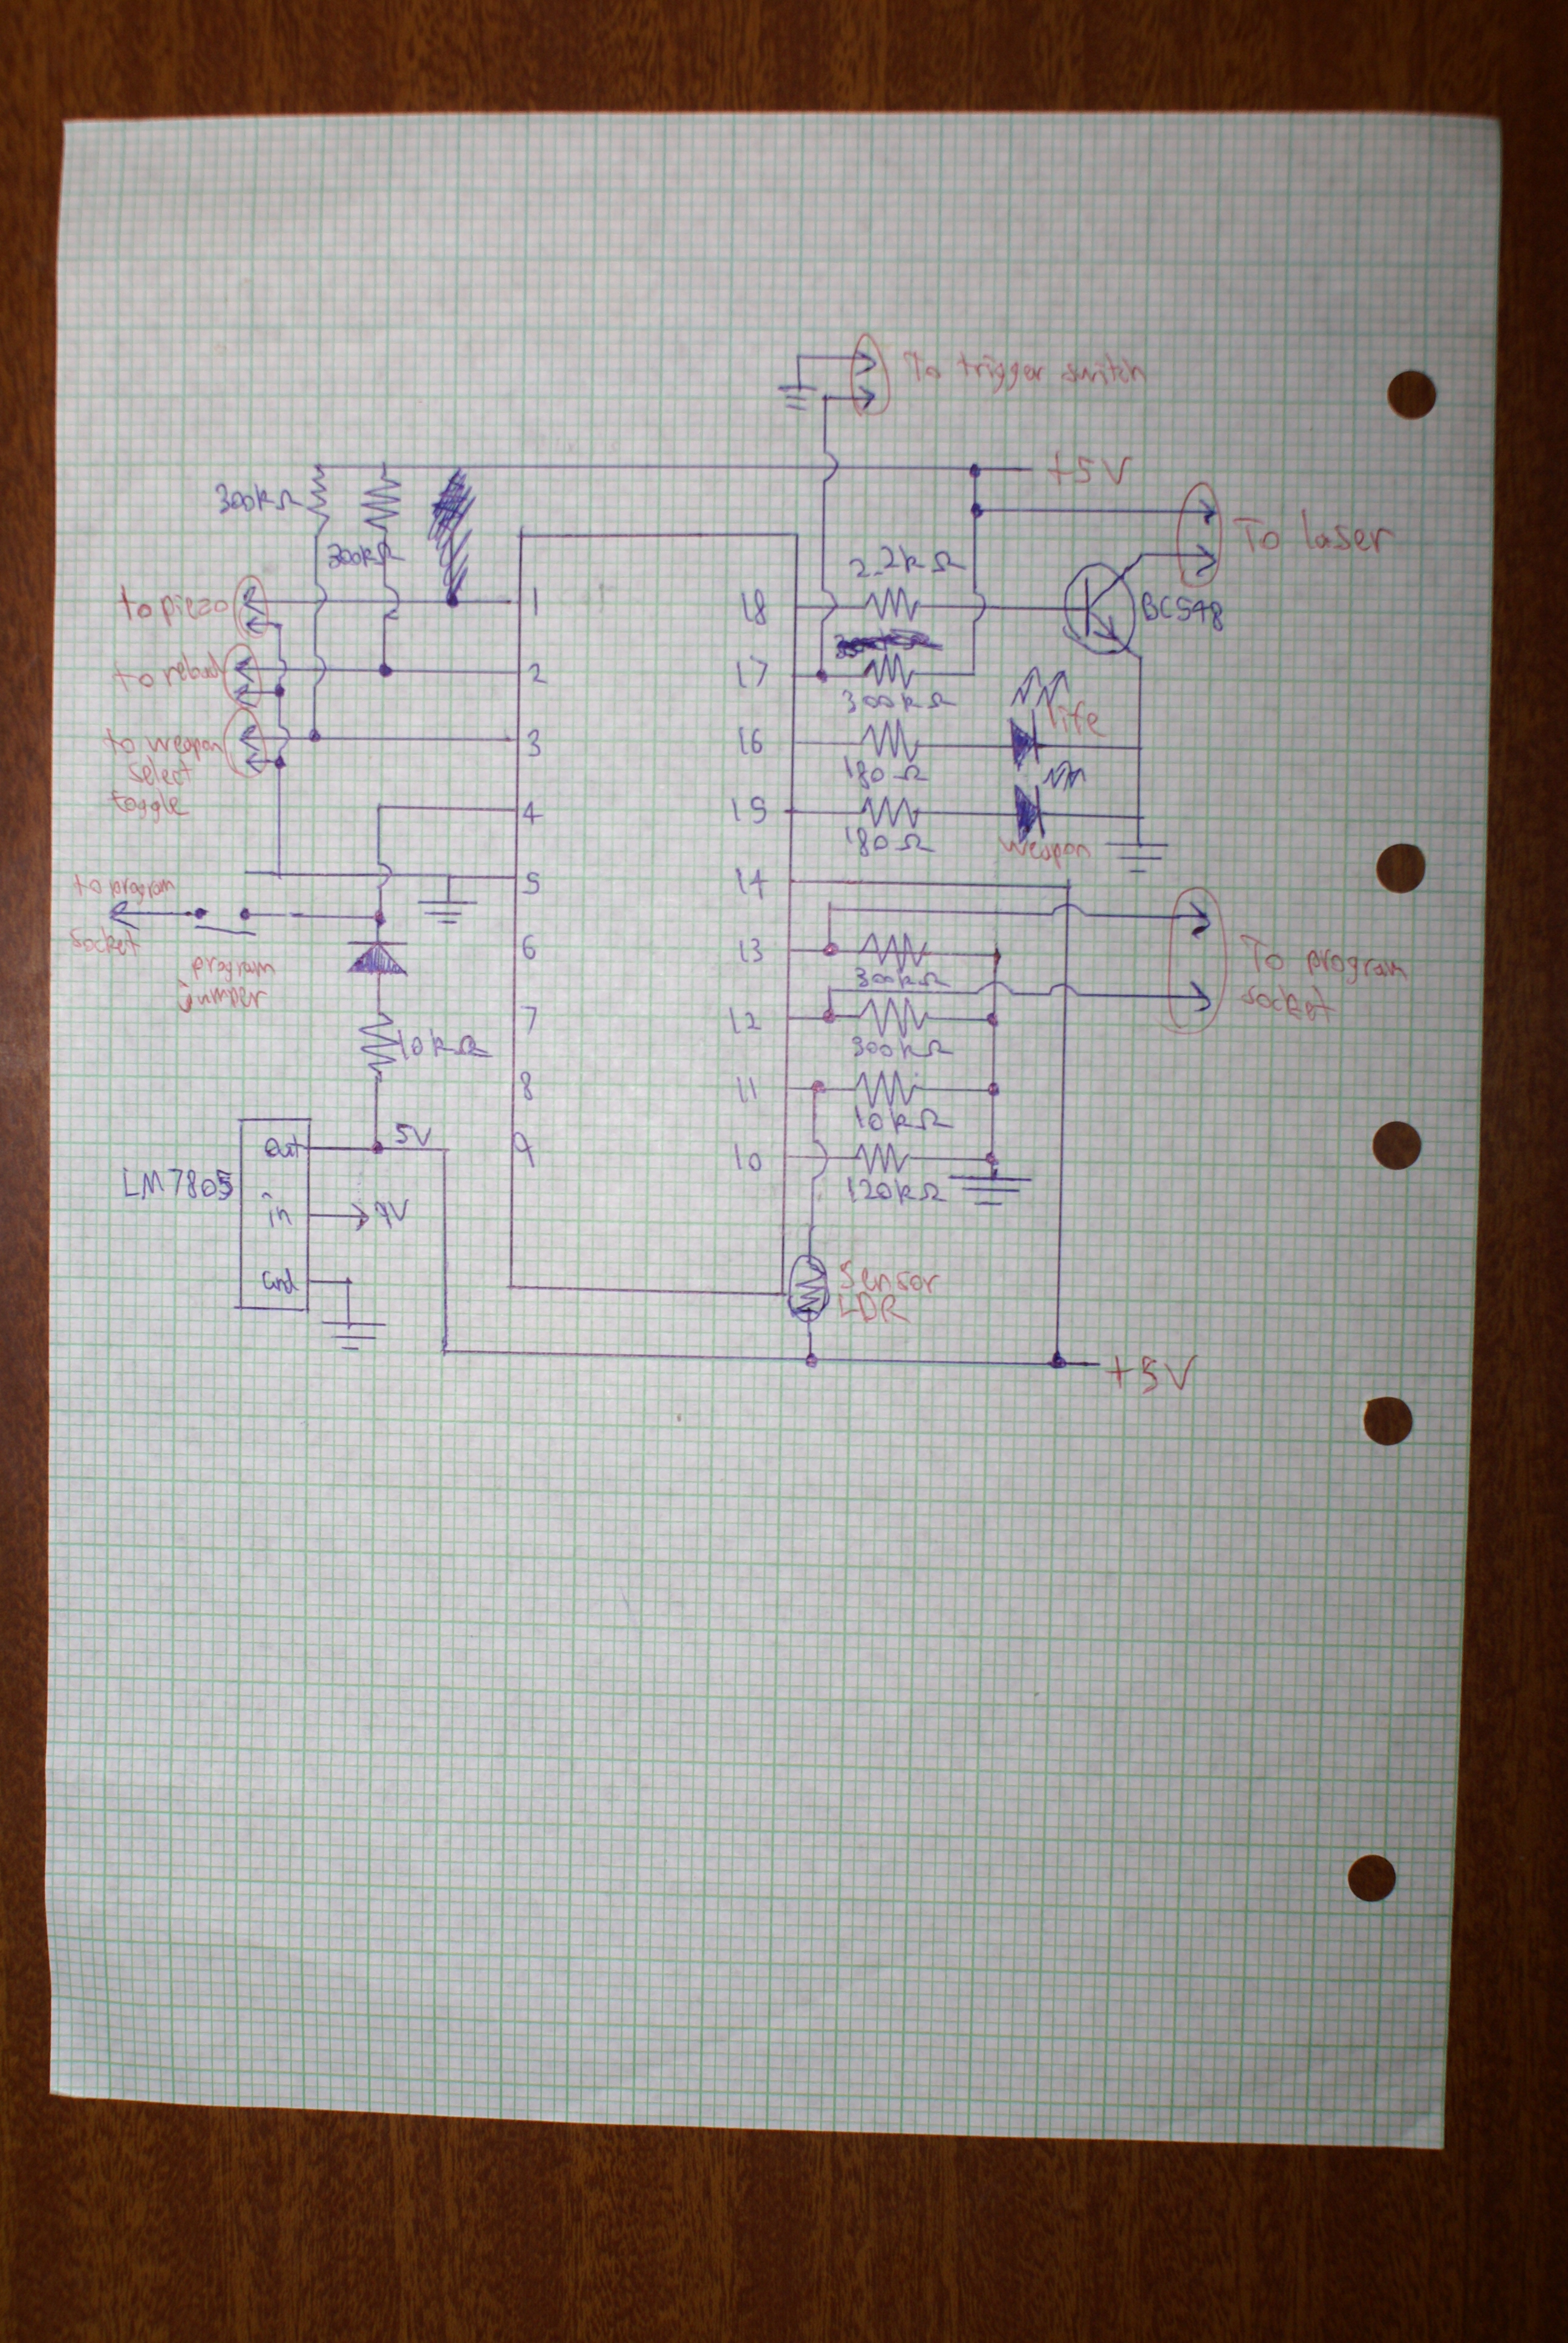 To trigger switch
+5V
300kΩ
300kΩ
2.2kΩ
To laser
to piezo
1
18
BC548
to reload
2
17
300kΩ
life
to weapon
select
toggle
3
16
180Ω
4
15
180Ω
weapon
5
14
to program
socket
program
jumper
6
13
300kΩ
To program
socket
7
12
300kΩ
10kΩ
8
11
10kΩ
9
10
120kΩ
5V
LM7805
out
in
9V
Gnd
Sensor
LDR
+5V